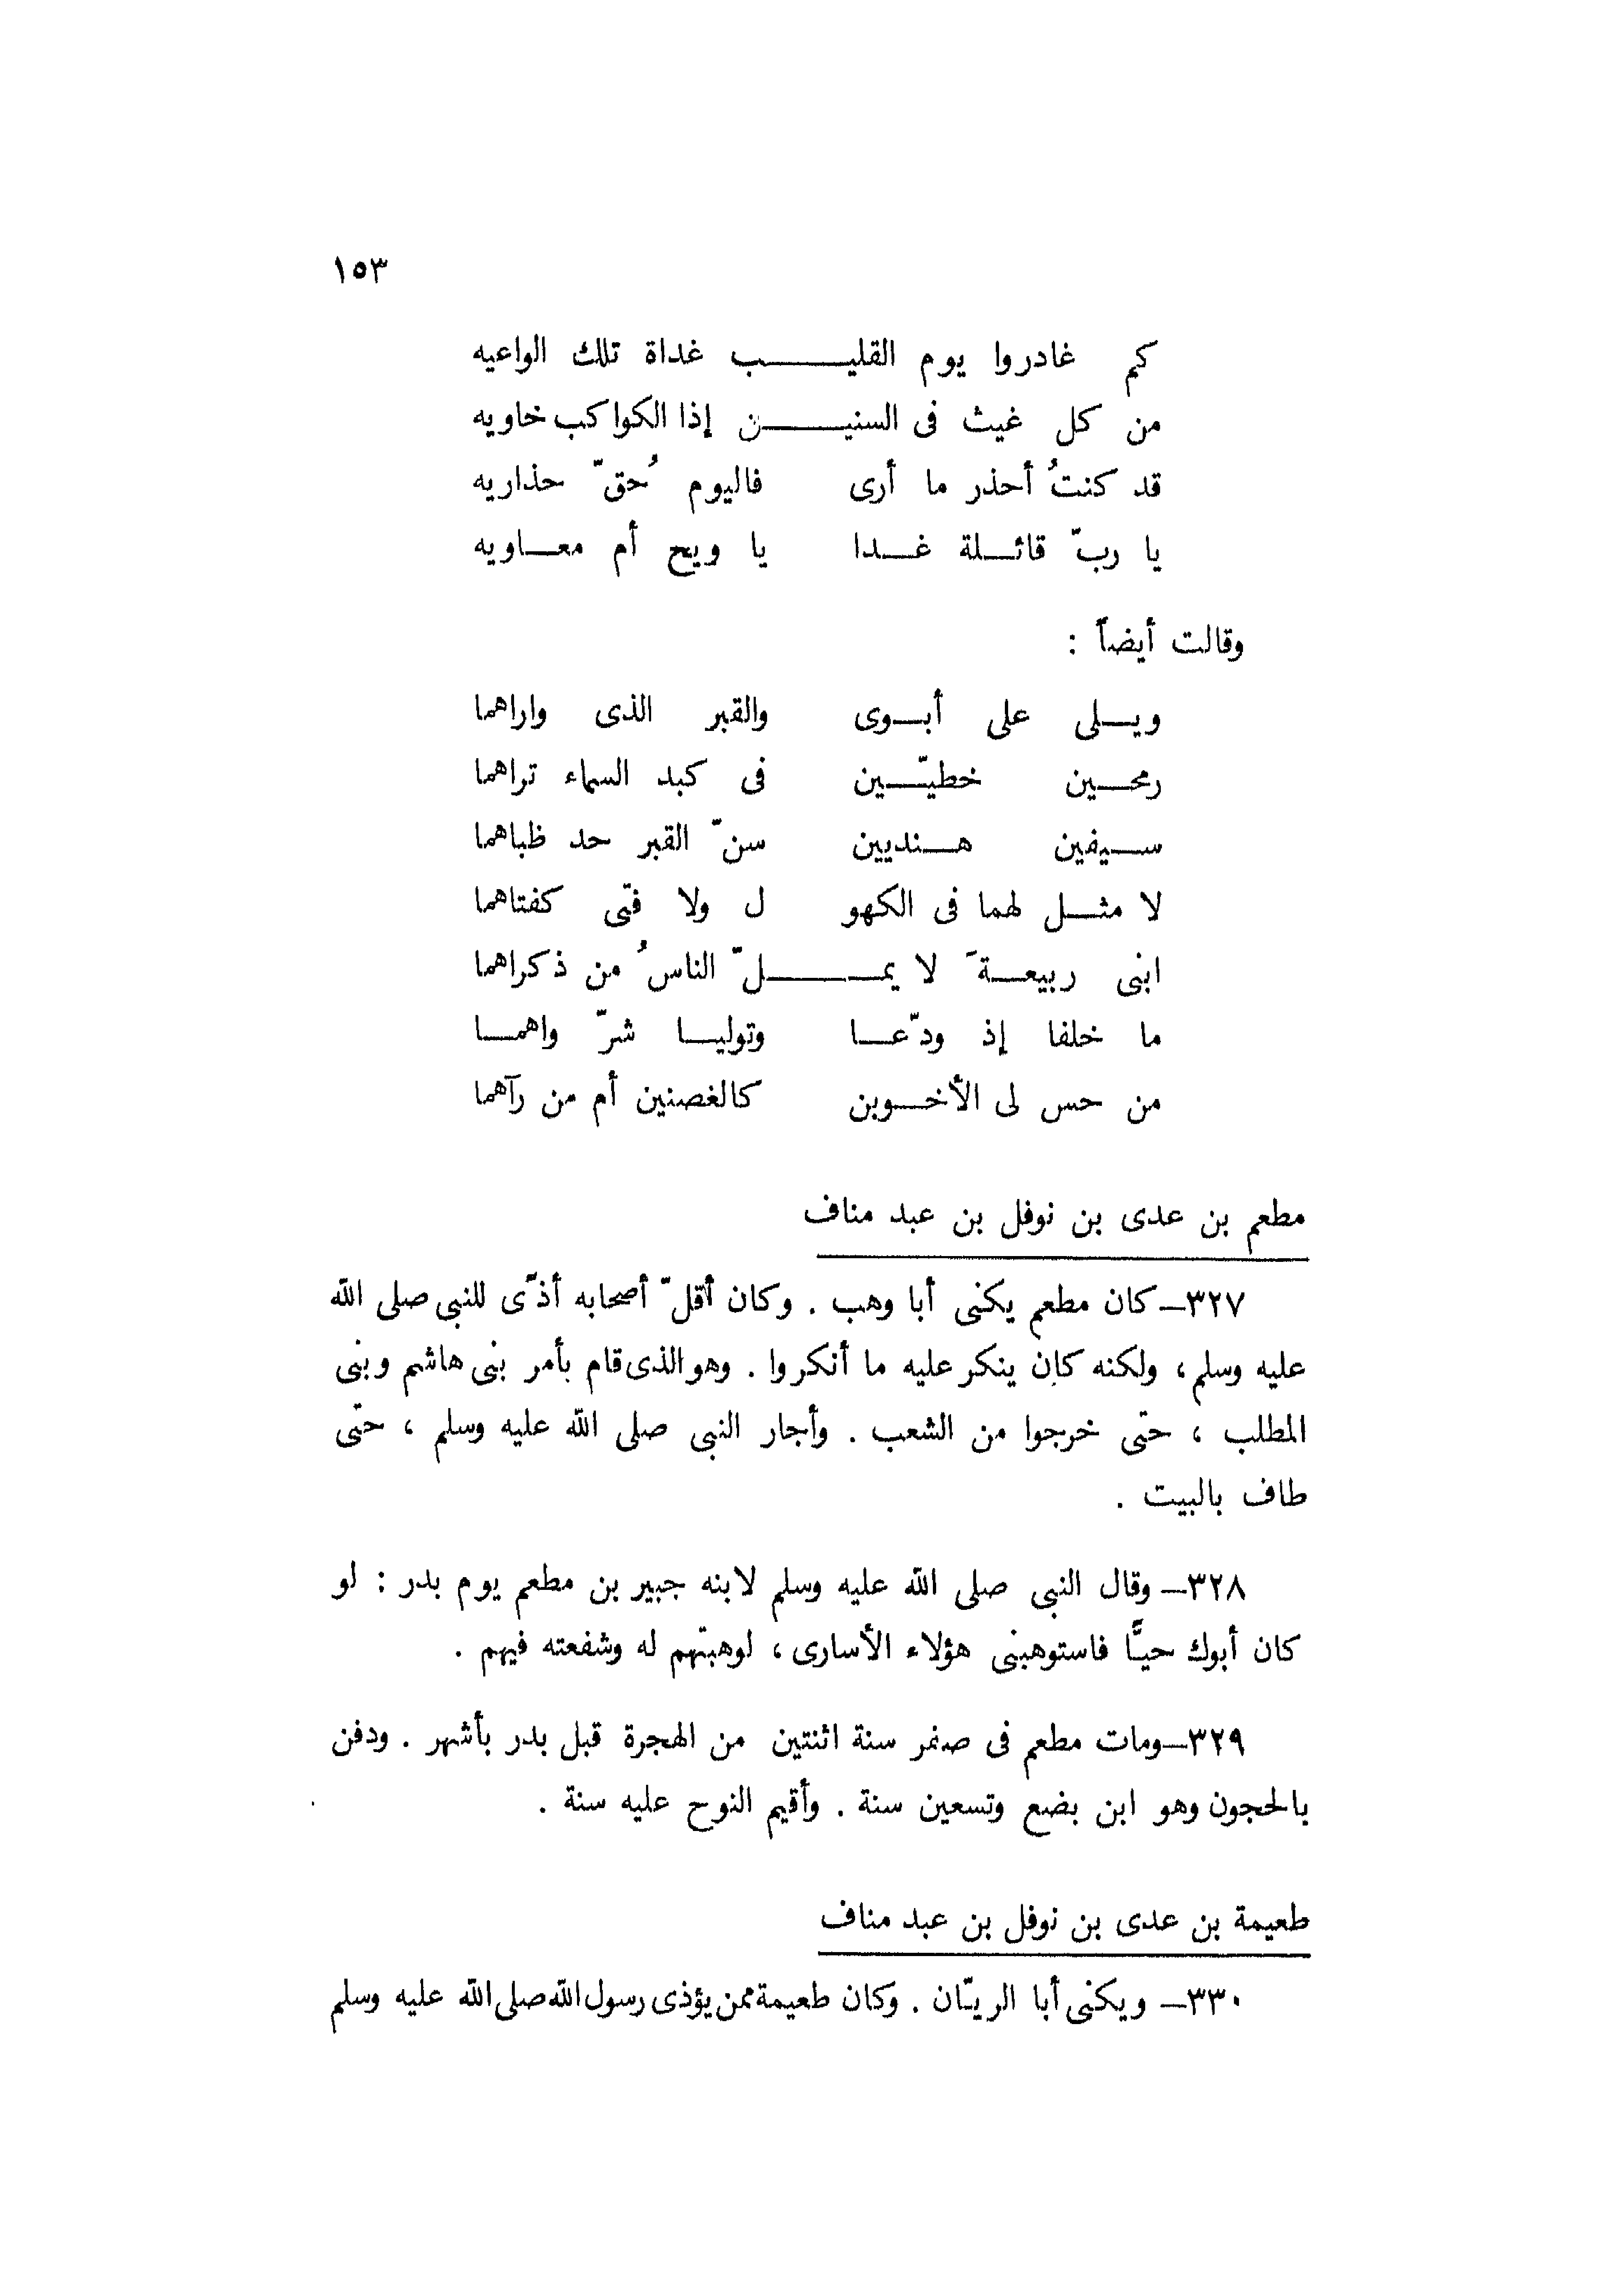 ١٥٣
كم غادروا يوم القليـــب غداة تلك الواعيه
من كل غيث فى السنيـــن إذا الكواكب خاويه
قد كنتُ أحذر ما أرى فاليوم حُقّ حذاريه
يا ربّ قائلة غدا يا ويح أم معاويه
وقالت أيضاً :
ويلى على أبوى والقبر الذى واراهما
رمحين خطيّين فى كبد السماء تراهما
سيفين هنديين سنّ القبر حد ظباهما
لا مثل لهما فى الكهو ل ولا فتى كفتاهما
ابنى ربيعةَ لا يمـــلّ الناسُ من ذكراهما
ما خلفا إذ ودّعا وتوليا شرّ واهما
من حس لى الأخوين كالغصنين أم من رآهما
مطعم بن عدى بن نوفل بن عبد مناف
٣٢٧ــ كان مطعم يكنى أبا وهب . وكان أقلّ أصحابه أذًى للنبى صلى الله
عليه وسلم، ولكنه كان ينكر عليه ما أنكروا . وهو الذى قام بأمر بنى هاشم وبنى
المطلب ، حتى خرجوا من الشعب . وأجار النبى صلى الله عليه وسلم ، حتى
طاف بالبيت .
٣٢٨ــ وقال النبى صلى الله عليه وسلم لابنه جبير بن مطعم يوم بدر : لو
كان أبوك حيًّا فاستوهبنى هؤلاء الأسارى ، لوهبتهم له وشفعته فيهم .
٣٢٩ــ ومات مطعم فى صفر سنة اثنتين من الهجرة قبل بدر بأشهر . ودفن
بالحجون وهو ابن بضع وتسعين سنة . وأقيم النوح عليه سنة .
طعيمة بن عدى بن نوفل بن عبد مناف
٣٣٠ــ ويكنى أبا الريّان . وكان طعيمة ممن يؤذى رسول الله صلى الله عليه وسلم